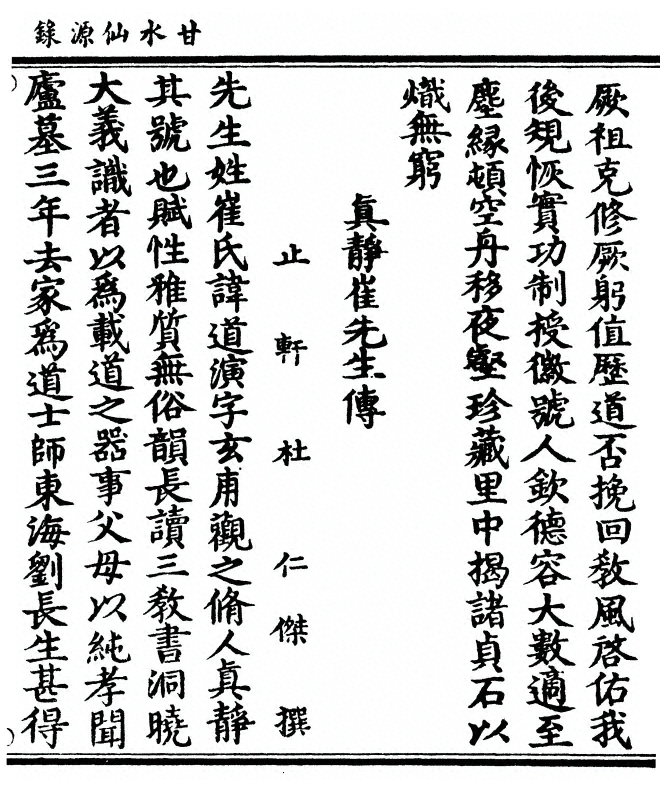 甘水仙源錄
厥祖克修厥躬值歷道否挽回敎風啓佑我
後規恢實功制授徽號人欽德容大數適至
塵緣頓空丹移夜壑珍藏里中揭諸貞石以
熾無窮
眞靜崔先生傳
止軒杜仁傑撰
先生姓崔氏諱道演字玄甫觀之脩人眞靜
其號也賦性雅質無俗韻長讀三敎書洞曉
大義識者以爲載道之器事父母以純孝聞
廬墓三年去家爲道士師東海劉長生甚得